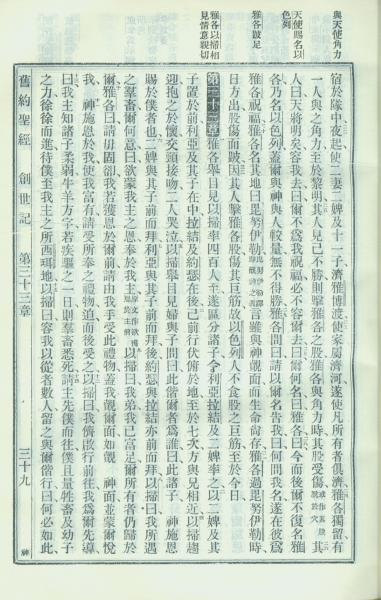 與天使角力
天使賜名以
色列
雅各跛足
雅各以掃相
見情意親切
宿於隊中夜起使二妻二婢及十一子濟雅博渡使家屬濟河遂使凡所有者俱濟雅各獨留有
一人與之角力至於黎明其人見己不勝則擊雅各之股雅各與角力時其股受傷或作其股脫於穴其
人曰天將明矣容我去曰爾不爲我祝福必不容爾去曰爾何名曰雅各曰今而後爾不復名雅
各乃名以色列蓋爾與神與人較量無不得勝雅各問曰請以爾名告我曰何問我名遂在彼爲
雅各祝福雅各名其地曰毘努伊勒毘努伊勒譯卽神之面言雖與神覿面而生命尙存雅各過毘努伊勒時
日方出股傷而跛因其人擊雅各股傷其巨筋故以色列人不食股之巨筋至於今日
第三十三章雅各舉目見以掃率四百人至遂區分諸子令利亞拉結及二婢率之以二婢及其
子置於前利亞及其子在中拉結及約瑟在後己前行伏俯於地至於七次方與兄相近以掃趨
迎抱之於懷交頸接吻二人哭泣以掃舉目見婦與子問曰此偕爾者爲誰曰此諸子 神施恩
賜於僕者也二婢與其子前而拜利亞與其子前而拜後約瑟與拉結亦前而拜以掃曰我所遇
之羣畜何意曰欲蒙我主之恩奉於我主原文作欲獲恩於主前以掃曰我弟我已富足爾所有者仍歸於
爾雅各曰請毋固卻我若獲恩於爾前請由我手受此禮物蓋我覿爾面如覿 神面並蒙爾悅
我 神施恩於我使我富有請受所奉之禮物迫而後受之以掃曰我儕啟行前往我爲爾先導
曰我主知諸子柔弱牛羊方字若疾驅之一日則羣畜悉死請主先僕而往僕且量牲畜及幼子
之力徐徐而進待僕至我主之所西珥地以掃曰容我以從者數人留之與爾偕行曰何必如此
舊約聖經 創世記 第三十三章 三十九 神